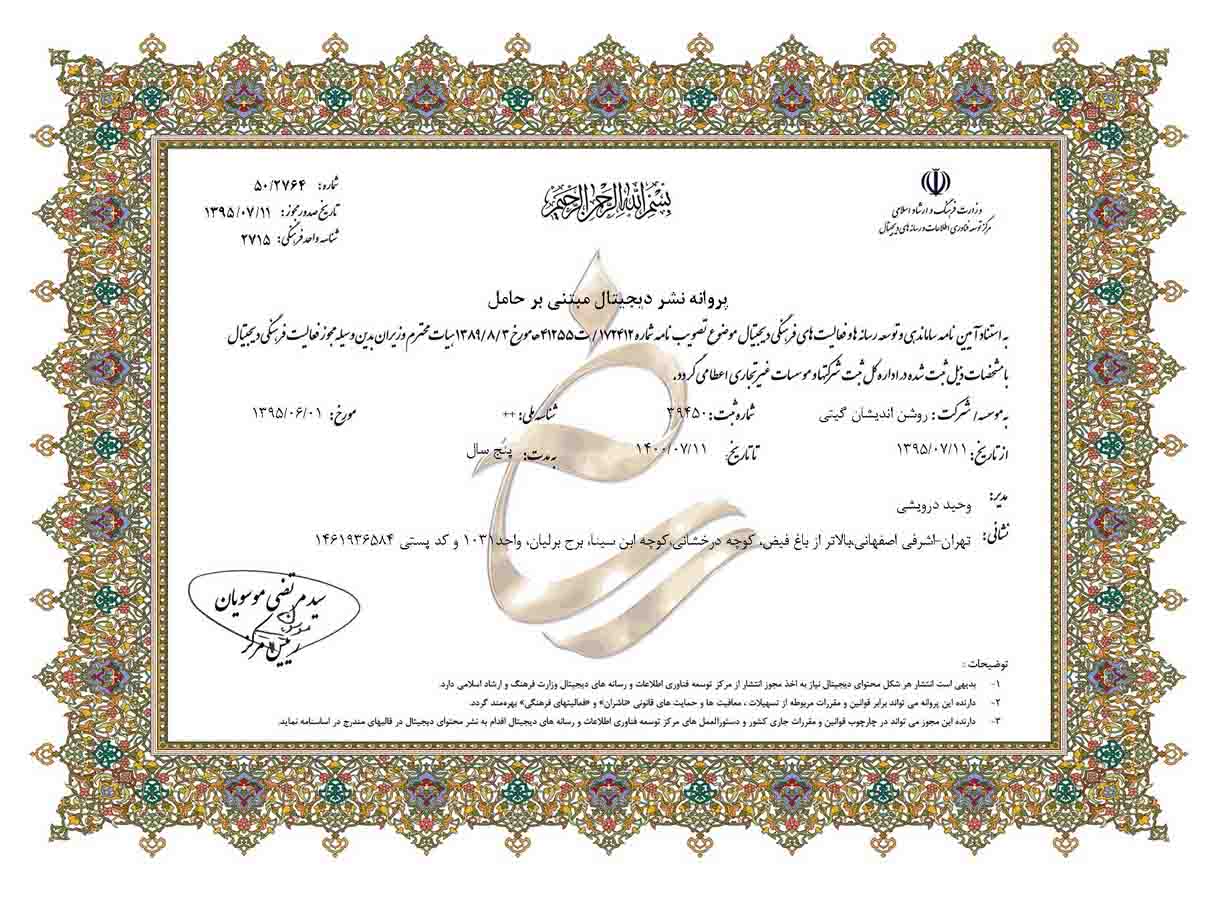 بسم الله الرحمن الرحیم
وزارت فرهنگ و ارشاد اسلامی
مرکز توسعه فناوری اطلاعات و رسانه های دیجیتال
شماره: ۵۰/۲۷۶۴
تاریخ صدور مجوز: ۱۳۹۵/۰۷/۱۱
شناسه واحد فرهنگی: ۲۷۱۵
پروانه نشر دیجیتال مبتنی بر حامل
به استناد آیین نامه ساماندهی و توسعه رسانه ها و فعالیت های فرهنگی دیجیتال موضوع تصویب نامه شماره ۱۷۲۴۱۲/ت۴۱۲۵۵ه مورخ ۱۳۸۹/۸/۳ هیات محترم وزیران بدین وسیله مجوز فعالیت فرهنگی دیجیتال
با مشخصات ذیل ثبت شده در اداره کل ثبت شرکتها و موسسات غیر تجاری اعطا می گردد.
به موسسه/ شرکت: روشن اندیشان گیتی شماره ثبت: ۳۹۴۵۰ شناسه ملی: ++ مورخ: ۱۳۹۵/۰۶/۰۱
از تاریخ: ۱۳۹۵/۰۷/۱۱ تا تاریخ: ۱۴۰۰/۰۷/۱۱ به مدت: پنج سال
مدیر: وحید درویشی
نشانی: تهران-اشرفی اصفهانی،بالاتر از باغ فیض، کوچه درخشانی،کوچه ابن سینا، برج برلیان، واحد۱۰۳۱ و کد پستی ۱۴۶۱۹۳۶۵۸۴
سید مرتضی موسویان
رییس مرکز
توضیحات :
۱- بدیهی است انتشار هر شکل محتوای دیجیتال نیاز به اخذ مجوز انتشار از مرکز توسعه فناوری اطلاعات و رسانه های دیجیتال وزارت فرهنگ و ارشاد اسلامی دارد.
۲- دارنده این پروانه می تواند برابر قوانین و مقررات مربوطه از تسهیلات ، معافیت ها و حمایت های قانونی «ناشران» و «فعالیتهای فرهنگی» بهره‌مند گردد.
۳- دارنده این مجوز می تواند در چارچوب قوانین و مقررات جاری کشور و دستورالعمل های مرکز توسعه فناوری اطلاعات و رسانه های دیجیتال اقدام به نشر محتوای دیجیتال در قالبهای مندرج در اساسنامه نماید.